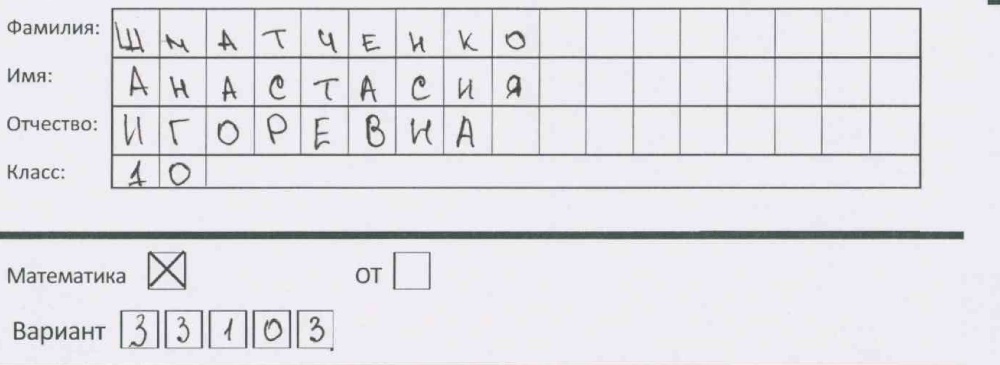 Фамилия: ШМАТЧЕНКО
Имя: АНАСТАСИЯ
Отчество: ИГОРЕВНА
Класс: 10
Математика ☒ ОТ ☐
Вариант 33103